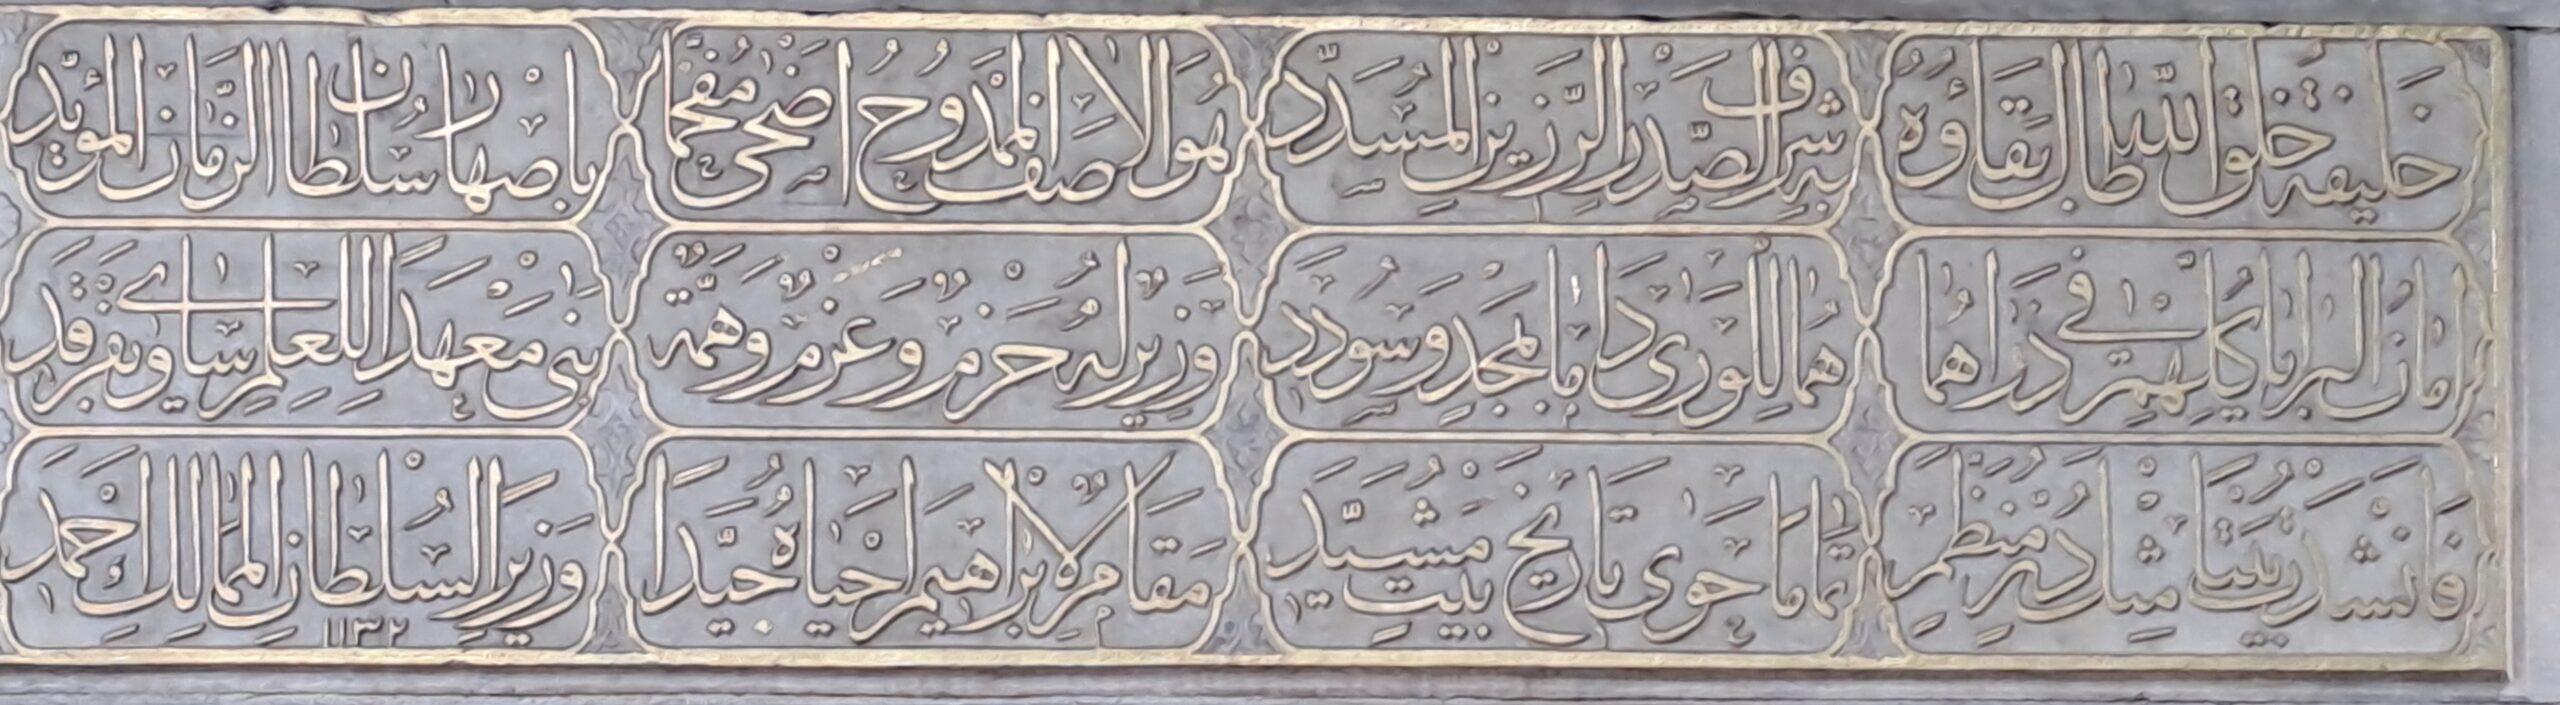 خَلِيفَةُ خَلْقِ اللّٰهِ طَالَ بَقَاؤُهُ
بِهِ شَرَفُ الصَّدْرِ الرَّزِينِ الْمُسَدَّدِ
هُوَ الْآصَفُ الْمَمْدُوحُ اَضْحٰى مُفَخَّمًا
بِاِصْهَارِ سُلْطَانِ الزَّمَانِ الْمُؤَيَّدِ
اَمَانُ الْبَرَايَا كُلِّهِمْ فِي ذَرَاهُمَا
هُمَا لِلْوَرٰى دَامَا بِمَجْدٍ وَسُودَدِ
وَزِيرٌ لَهُ حَزْمٌ وَعَزْمٌ وَهِمَّةٌ
بَنٰى مَعْهَدًا لِلْعِلْمِ سَاوٰى بِفَرْقَدِ
فَاَنْشَدْتُ بَيْتًا مِثْلَ دُرٍّ مُنَظَّمٍ
تَمَامًا حَوٰى تَارِيخَ بَيْتٍ مُشَيَّدِ
مَقَامٌ لِاِبْرٰهِيمَ اَحْيَاهُ جَيِّدًا
وَزِيرًا لِسُلْطَانِ الْمَمَالِكِ اَحْمَدِ
١١٣٢